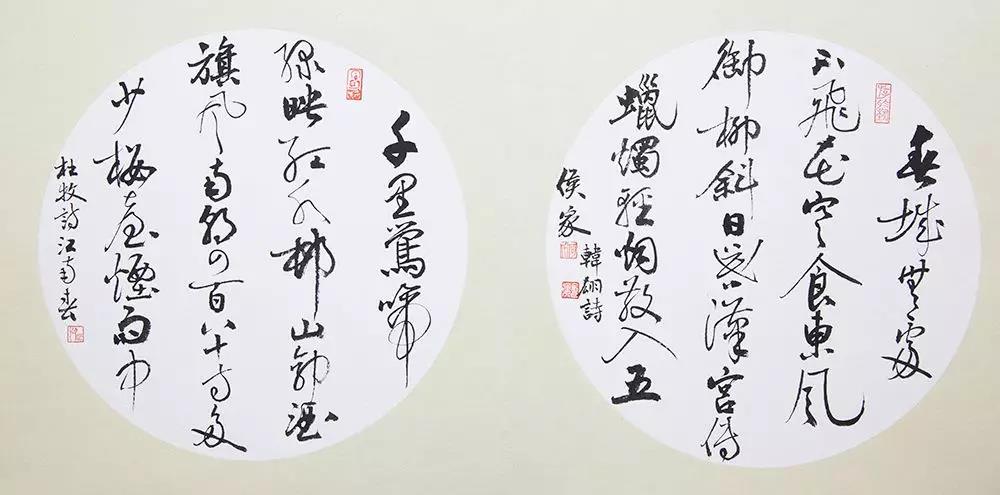 春城無處
不飛花寒食東風
御柳斜日暮漢宮傳
蠟燭輕烟散入五
侯家
韓翃詩
千里鶯啼
綠映紅水村山郭酒
旗風南朝四百八十寺多
少樓臺煙雨中
杜牧詩江南春